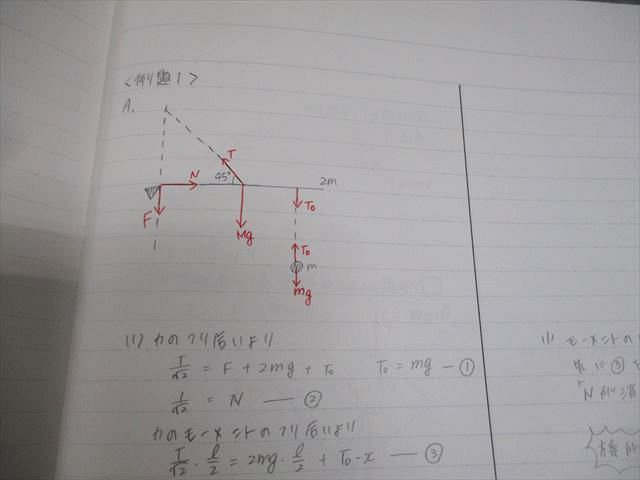 <例題1>
A.
T
N
45°
2m
F
T₀
Mg
T₀
m
mg
(1) 力のつり合いより
T/√2 = F + 2mg + T₀  T₀ = mg ―①
1/√2 = N ―②
力のモーメントのつり合いより
T/√2・l/2 = 2mg・l/2 + T₀・x ―③
モーメントの
に③を
Nが